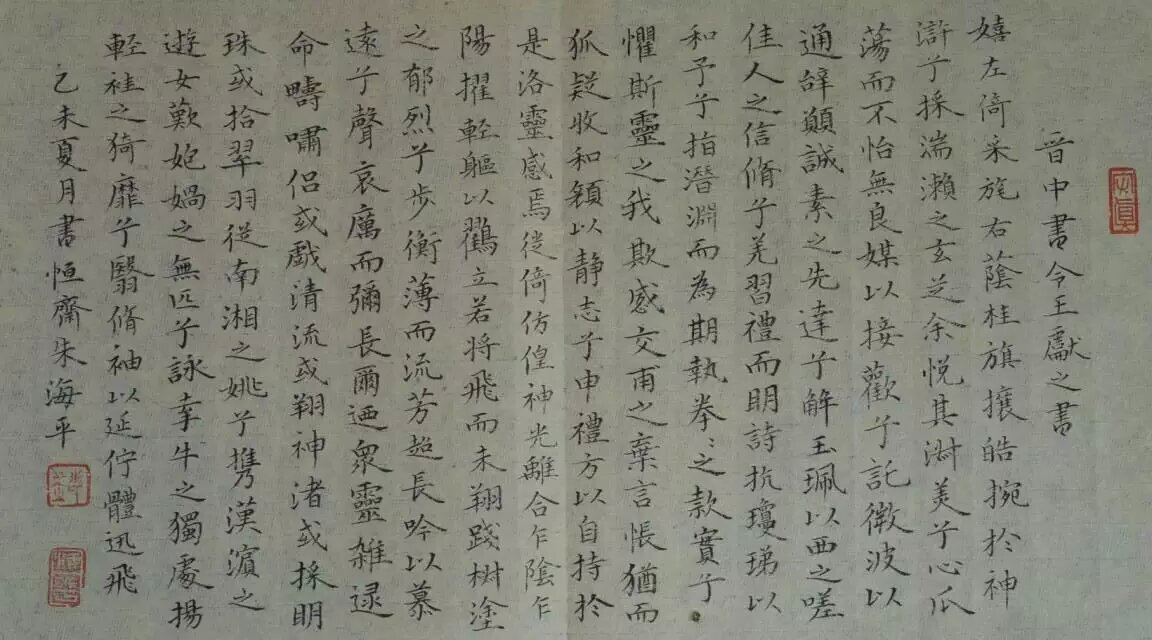 晋中書令王獻之書
嬉左倚采旄右蔭桂旗攘皓捥於神
滸兮採湍瀨之玄芝余悦其淑美兮心瓜
蕩而不怡無良媒以接歡兮託微波以
通辭顚誠素之先達兮解玉珮以西之嗟
佳人之信脩兮羌習禮而眀詩抗瓊珶以
和予兮拍潛淵而為期執拳〻之款實兮
懼斯靈之我欺感交甫之棄言悵猶而
狐疑收和顏以静志兮申禮方以自持於
是洛靈感焉徙倚仿偟神光離合乍陰乍
陽擢輕軀以鶴立若將飛而未翔踐椒塗
之郁烈兮步衡薄而流芳超長吟以慕
遠兮聲哀厲而彌長爾迺衆靈雜遝
命疇嘯侣或戲清流或翔神渚或採眀
珠或拾翠羽從南湘之姚兮携漢濱之
遊女歎匏媧之無匹兮詠牽牛之獨處揚
輕袿之猗靡兮翳脩袖以延佇體迅飛
乙未夏月書恒齋朱海平